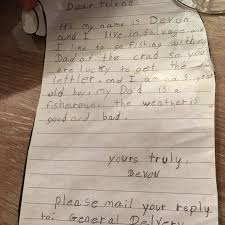 Dear friend
my name is Devon
and I live in Salvage and
I like to go fishing with my
Dad at the crad so you
are lucky to get the
lettler. and I am a 9 year
old boy. my Dad is a
fisherman. the weather is
good and bad.
yours truly,
DEVON
please mail your reply
to: General Delivery